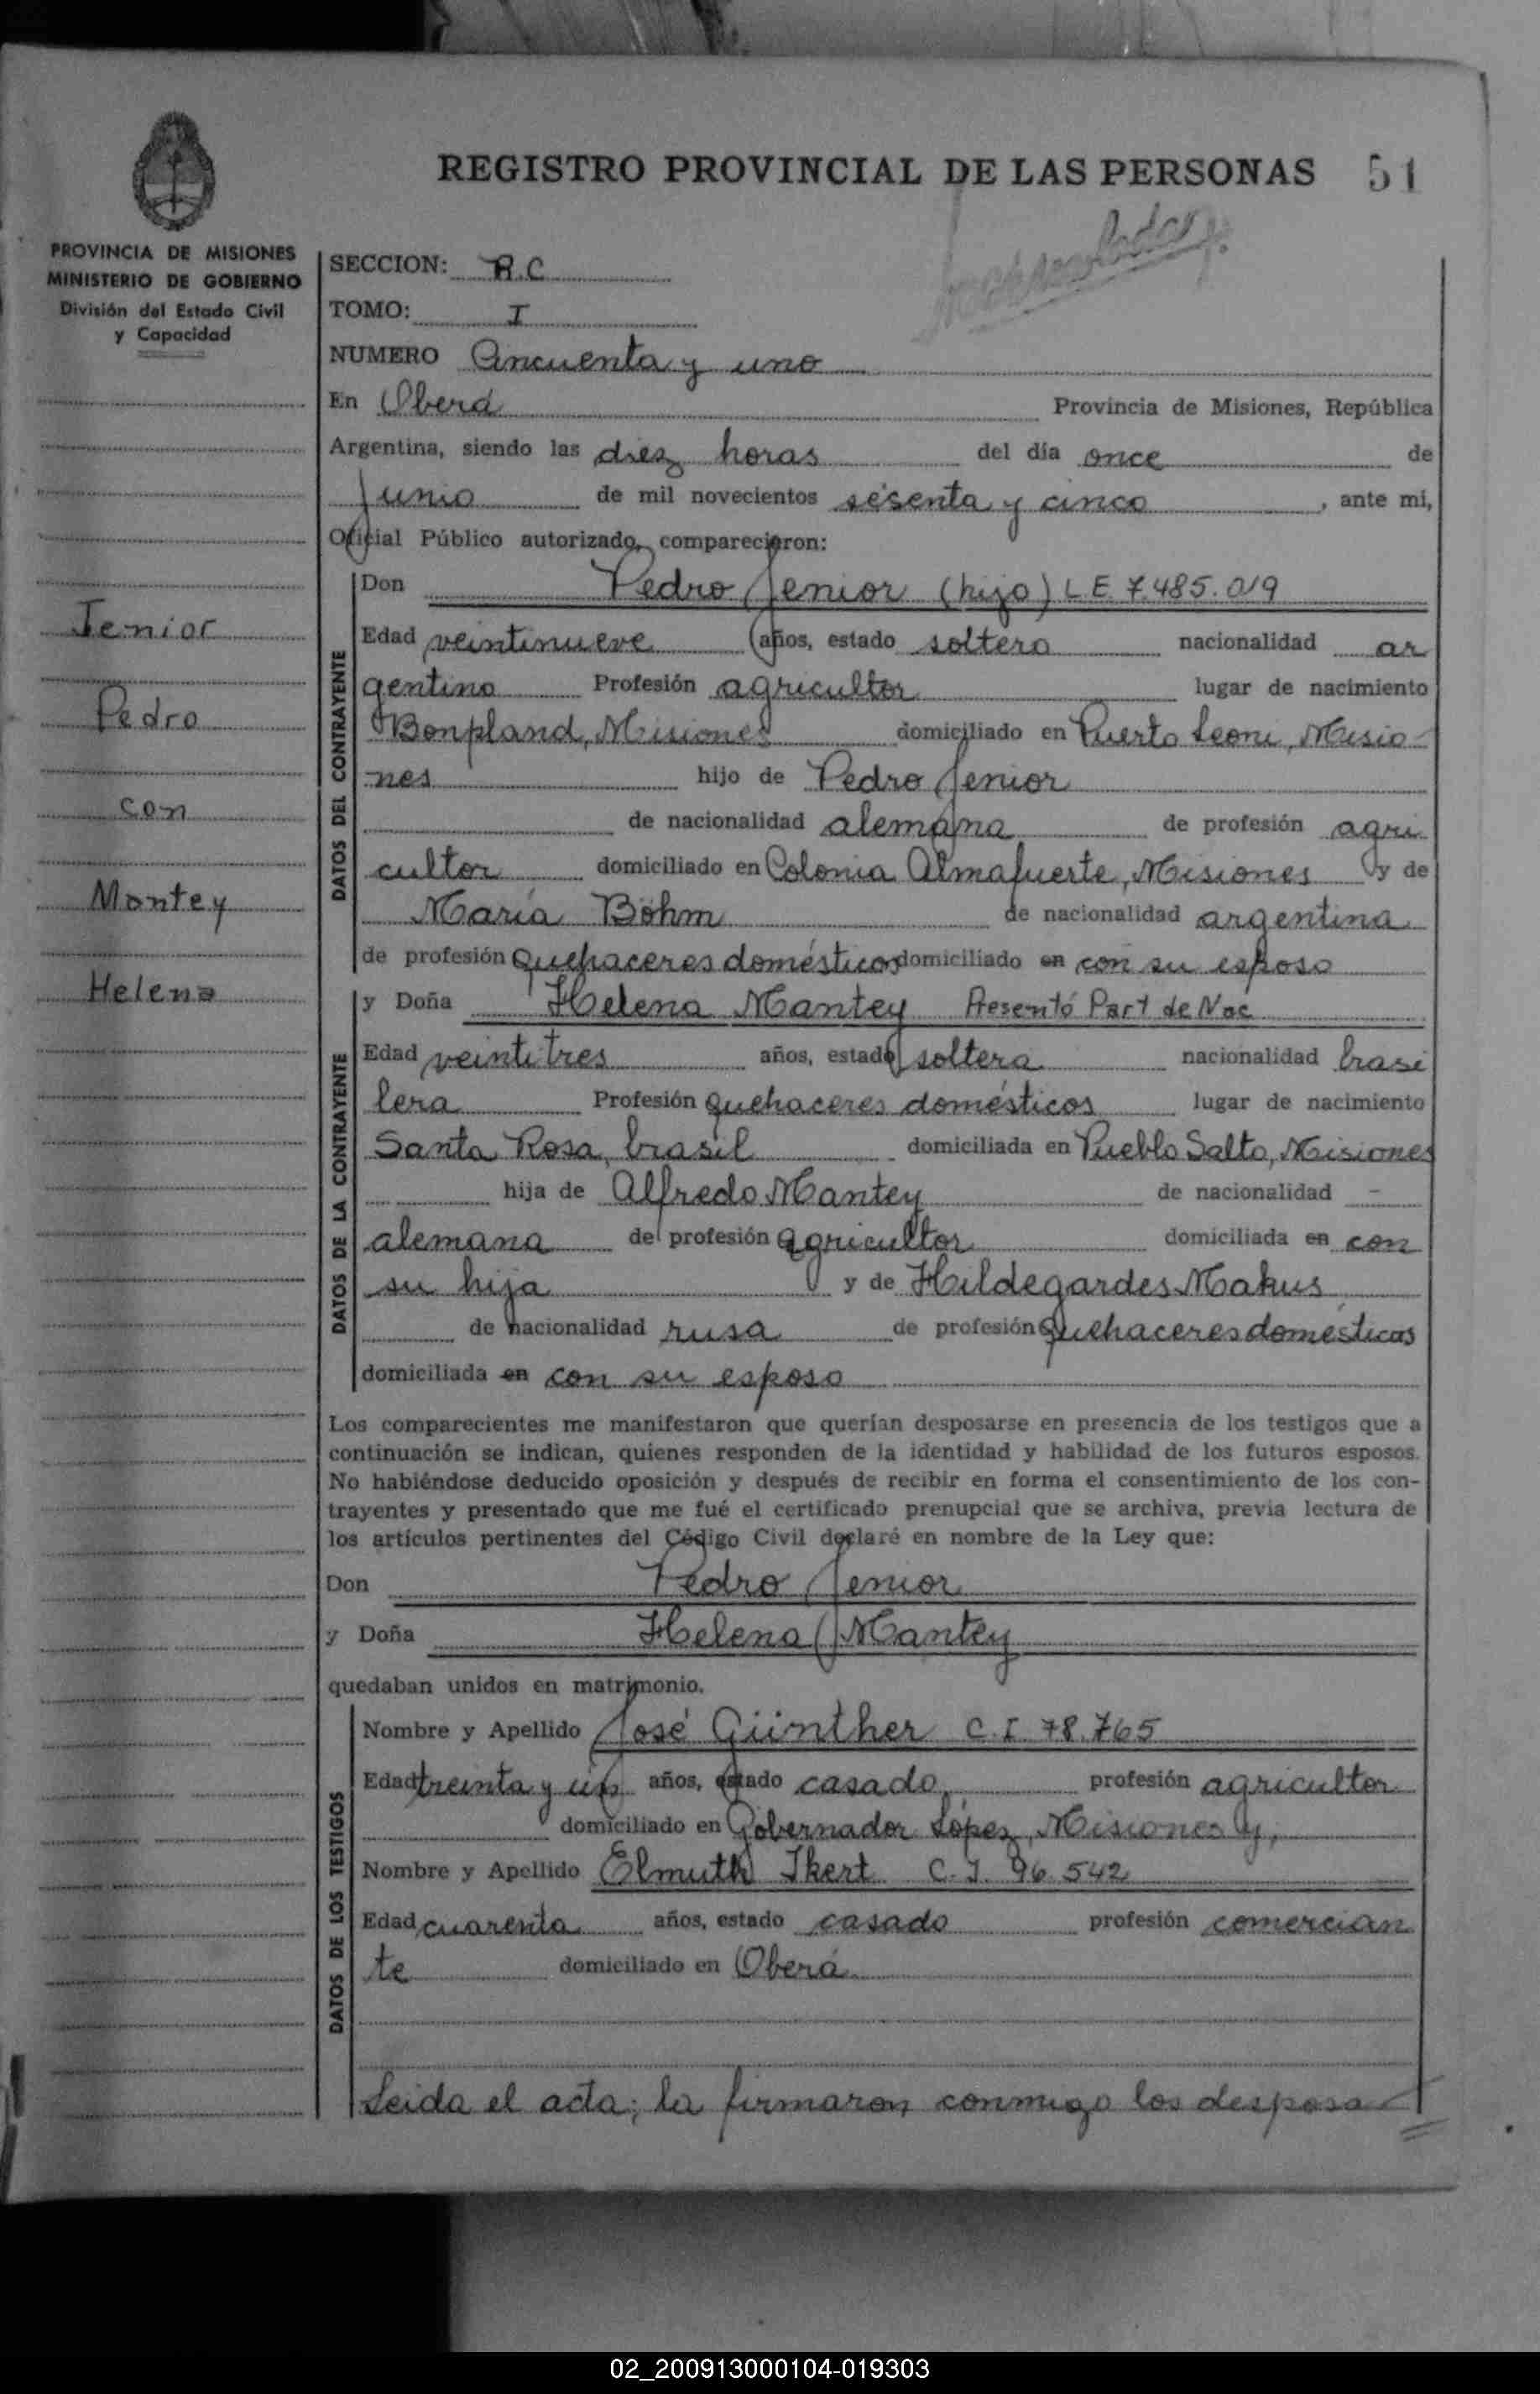 REGISTRO PROVINCIAL DE LAS PERSONAS 51
PROVINCIA DE MISIONES
MINISTERIO DE GOBIERNO
División del Estado Civil
y Capacidad
Jenior
Pedro
con
Mantey
Helena
SECCION: R.C
TOMO: I
NUMERO Cincuenta y uno
En Oberá Provincia de Misiones, República
Argentina, siendo las diez horas del día once de
Junio de mil novecientos sesenta y cinco, ante mi,
Oficial Público autorizado, comparecieron:
DATOS DEL CONTRAYENTE
Don Pedro Jenior (hijo) L E 7.485.019
Edad veintinueve años, estado soltero nacionalidad ar
gentino Profesión agricultor lugar de nacimiento
Bonpland, Misiones domiciliado en Puerto Leoni, Misio-
nes hijo de Pedro Jenior
de nacionalidad alemana de profesión agri
cultor domiciliado en Colonia Almafuerte, Misiones y de
María Böhm de nacionalidad argentina
de profesión quehaceres domésticos domiciliado en con su esposo
DATOS DE LA CONTRAYENTE
y Doña Helena Mantey Presentó Part de Nac
Edad veintitres años, estado soltera nacionalidad brasi
lera Profesión quehaceres domésticos lugar de nacimiento
Santa Rosa, brasil domiciliada en Pueblo Salto, Misiones
hija de Alfredo Mantey de nacionalidad -
alemana de profesión agricultor domiciliada en con
su hija y de Hildegardes Makus
de nacionalidad rusa de profesión quehaceres domésticos
domiciliada en con su esposo
Los comparecientes me manifestaron que querían desposarse en presencia de los testigos que a
continuación se indican, quienes responden de la identidad y habilidad de los futuros esposos.
No habiéndose deducido oposición y después de recibir en forma el consentimiento de los con-
trayentes y presentado que me fué el certificado prenupcial que se archiva, previa lectura de
los artículos pertinentes del Código Civil declaré en nombre de la Ley que:
Don Pedro Jenior
y Doña Helena Mantey
quedaban unidos en matrimonio.
DATOS DE LOS TESTIGOS
Nombre y Apellido José Günther C.I 78.765
Edad treinta y un años, estado casado, profesión agricultor
domiciliado en Gobernador López, Misiones y,
Nombre y Apellido Elmuth Ikert C.I. 96.542
Edad cuarenta años, estado casado profesión comercian
te domiciliado en Oberá
Leida el acta; la firmaron conmigo los desposa-
02_200913000104-019303